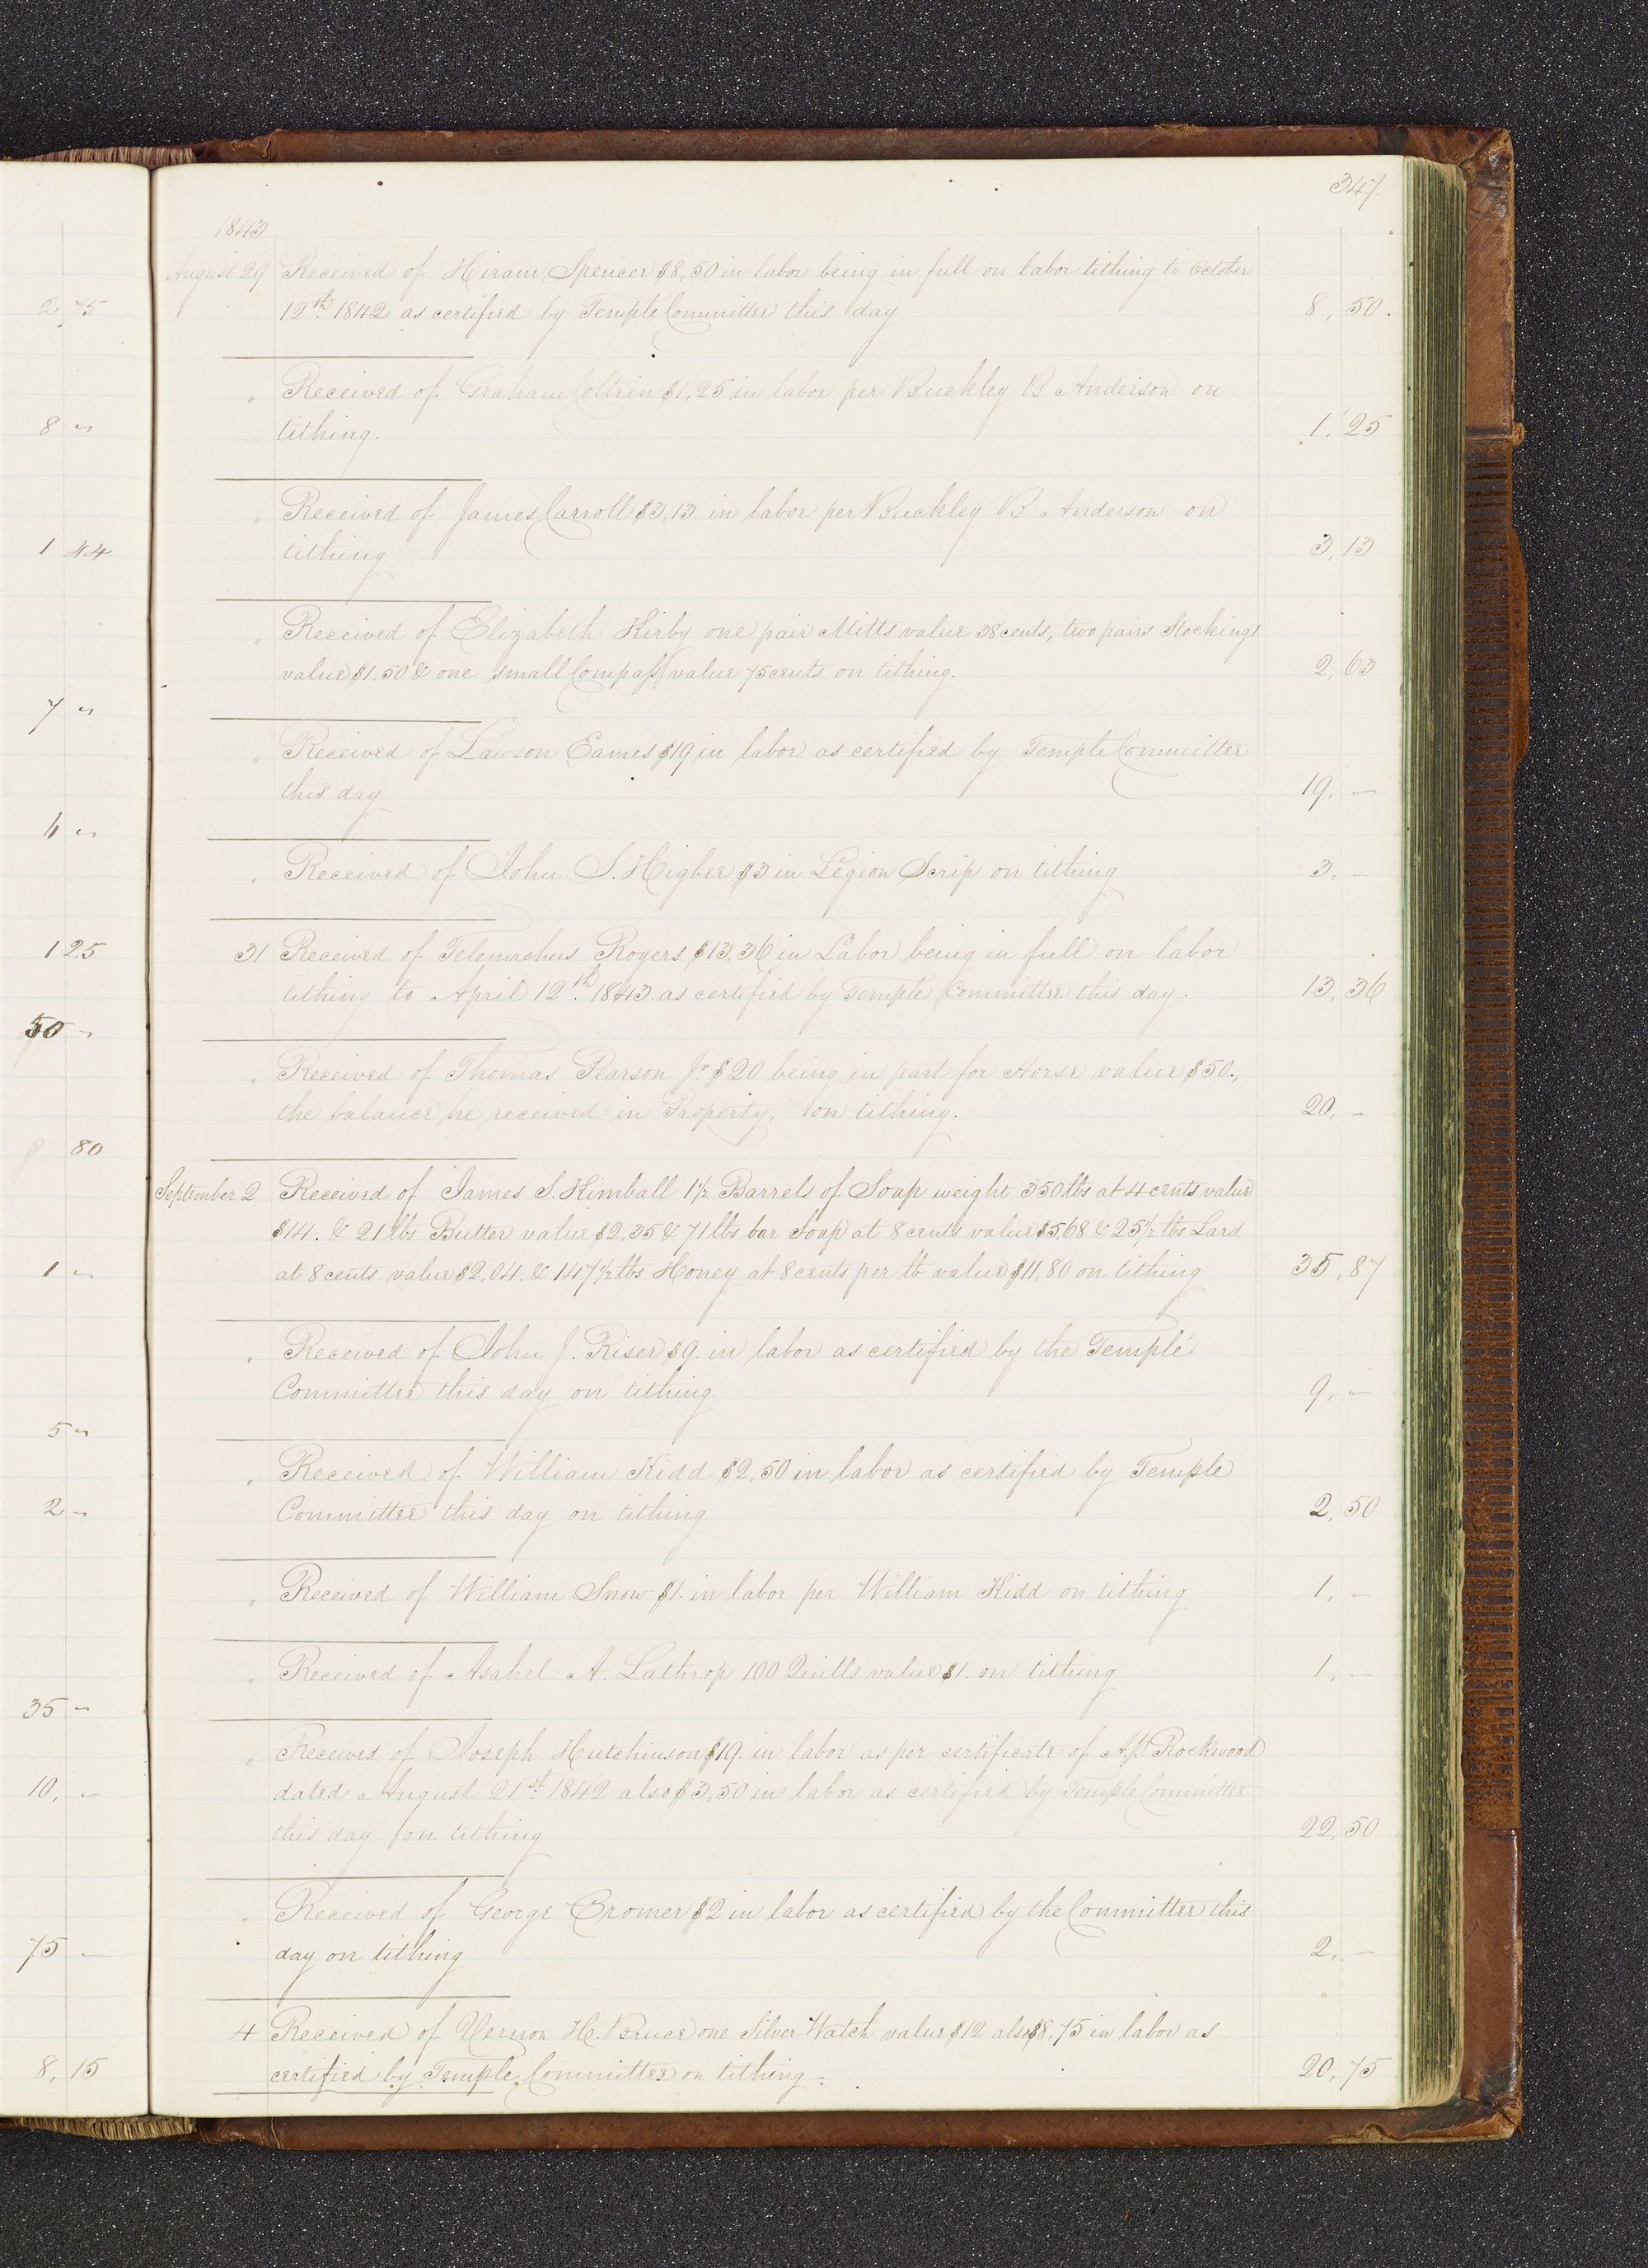 347.
1843
August 29 Received of Hiram Spencer $8,50 in labor being in full on labor tithing to October
12th 1842 as certified by Temple Committee this day 8, 50.
" Received of Graham Coltrin $1,25 in labor per Buckley B Anderson on
tithing. 1, 25
" Received of James Carroll $3,13. in labor per Buckley B Anderson on
tithing 3, 13
" Received of Elizabeth Kirby one pair Mitts value 38 cents, two pairs Stockings
value $1.50 & one small Compass value 75 cents on tithing. 2, 63
" Received of Lawson Eames $19 in labor as certified by Temple Committee
this day 19. —
" Received of John S. Higbee $3 in Legion Scrip on tithing 3. —
31 Received of Telemachus Rogers $13,36 in Labor being in full on labor
tithing to April 12th. 1843. as certified by Temple Committee this day. 13, 36
" Received of Thomas Pearson Jr. $20 being in part for Horse value $50.,
the balance he received in Property, on tithing. 20, —
September 2 Received of James S. Kimball 1½ Barrels of Soap weight 350 lbs at 4 cents value
$14. & 21 lbs Butter value $2,35 & 71 lbs bar Soap at 8 cents value $5,68 & 25½ lbs Lard
at 8 cents value $2,04. & 147½ lbs Honey at 8 cents per lb value $11,80 on tithing 35, 87
" Received of John J. Riser $9. in labor as certified by the Temple
Committee this day on tithing. 9, —
" Received of William Kidd $2,50 in labor as certified by Temple
Committee this day on tithing 2, 50
" Received of William Snow $1. in labor per William Kidd on tithing 1, —
" Received of Asahel A. Lathrop 100 Quills value $1. on tithing 1, —
" Received of Joseph Hutchinson $19. in labor as per certificate of A.P. Rockwood
dated August 21st. 1842 also $3,50 in labor as certified by Temple Committee
this day on tithing 22, 50
" Received of George Cromer $2 in labor as certified by the Committee this
day on tithing 2, —
4 Received of Vernon H. Bruce one Silver Watch value $12 also $8,75 in labor as
certified by Temple Committee on tithing 20, 75
2 75
8 "
1 44
7 "
1 25
50 "
80
1 "
5 "
2 "
35 "
10, "
75 —
8, 15